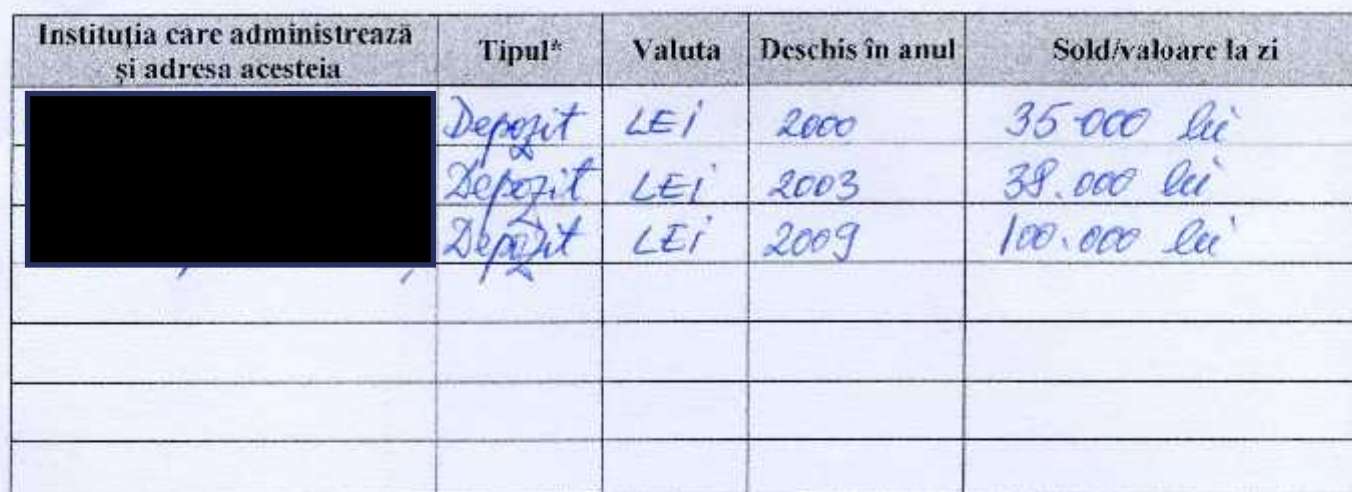 Instituția care administrează și adresa acesteia Tipul* Valuta Deschis în anul Sold/valoare la zi
Depozit LEI 2000 35 000 lei
Depozit LEI 2003 38.000 lei
Depozit LEI 2009 100.000 lei